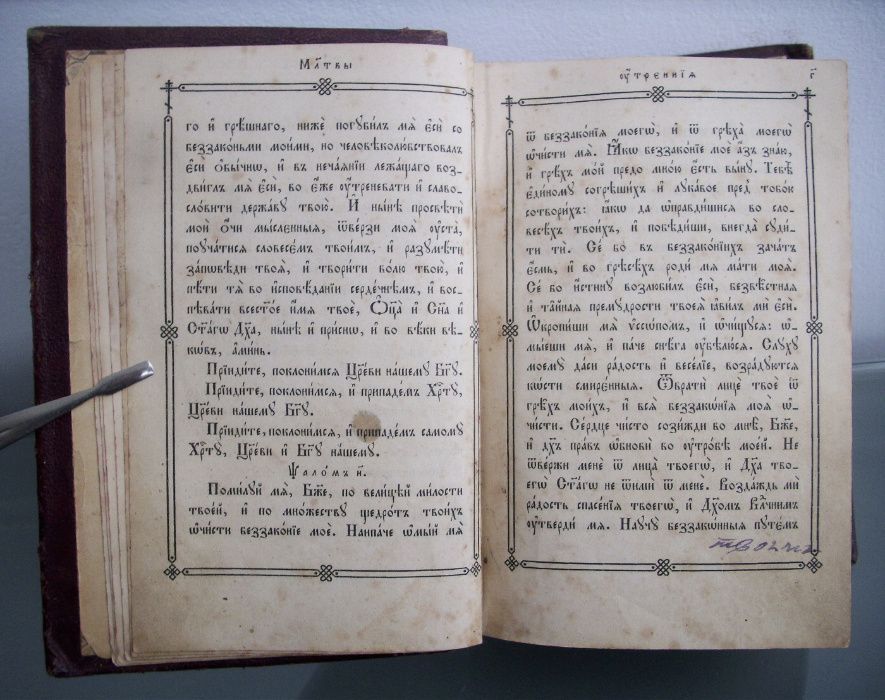 Мл҃твы
го и҆ грѣ́шнаго, нижѐ погуби́лъ мѧ̀ є҆сѝ со
беззако́ньми мои́ми, но человѣколю́бствовалъ
є҆сѝ ѡ҆бы́чнѡ, и҆ въ неча́ѧнїи лежа́щаго воз-
дви́глъ мѧ̀ є҆сѝ, во є҆́же ᲂу҆́треневати и҆ славо-
сло́вити держа́ву твою̀. И҆ ны́нѣ просвѣтѝ
моѝ ѻ҆́чи мы́сленныѧ, ѿве́рзи моѧ̀ ᲂу҆ста̀,
поꙋча́тисѧ словесе́мъ твои̑мъ, и҆ разꙋмѣ́ти
за́пѡвѣди твоѧ̑, и҆ твори́ти во́лю твою̀, и҆
пѣ́ти тѧ̀ во и҆сповѣ́данїи серде́чнѣмъ, и҆ вос-
пѣва́ти всест҃о́е и҆́мѧ твоѐ, Ѻ҆ц҃а̀ и҆ Сн҃а и҆
Ст҃а́гѡ Дх҃а, ны́нѣ и҆ при́снѡ, и҆ во вѣ́ки вѣ-
кѡ́въ, а҆ми́нь.
Прїиди́те, поклони́мсѧ Цр҃е́ви на́шемꙋ Бг҃ꙋ.
Прїиди́те, поклони́мсѧ, и҆ припаде́мъ Хрⷭ҇тꙋ̀,
Цр҃е́ви на́шемꙋ Бг҃ꙋ.
Прїиди́те, поклони́мсѧ, и҆ припаде́мъ самомꙋ̀
Хрⷭ҇тꙋ̀, Цр҃е́ви и҆ Бг҃ꙋ на́шемꙋ.
Ѱало́мъ н҃.
Поми́лꙋй мѧ̀, Бж҃е, по вели́цѣй ми́лости
твое́й, и҆ по мно́жествꙋ щедро́тъ твои́хъ
ѡ҆чи́сти беззако́нїе моѐ. Наипа́че ѡ҆мы́й мѧ̀
ᲂу҆́треннїѧ г҃
ѿ беззако́нїѧ моегѡ̀, и҆ ѿ грѣха̀ моегѡ̀
ѡ҆чи́сти мѧ̀. Ꙗ҆́кѡ беззако́нїе моѐ а҆́зъ зна́ю,
и҆ грѣ́хъ мо́й предо мно́ю є҆́сть вы́нꙋ. Тебѣ̀
є҆ди́номꙋ согрѣши́хъ и҆ лꙋка́вое пред̾ тобо́ю
сотвори́хъ: ꙗ҆́кѡ да ѡ҆правди́шисѧ во сло-
весѣ́хъ твои́хъ, и҆ побѣди́ши, внегда̀ сꙋди́-
ти тѝ. Се́ бо въ беззако́нїихъ зача́тъ
є҆́смь, и҆ во грѣсѣ́хъ родѝ мѧ̀ ма́ти моѧ̀.
Се́ бо и҆́стинꙋ возлюби́лъ є҆сѝ, безвѣ̑стнаѧ
и҆ та̑йнаѧ премꙋ́дрости твоеѧ̀ ꙗ҆ви́лъ мѝ є҆сѝ.
Ѡ҆кропи́ши мѧ̀ ѵ҆ссѡ́помъ, и҆ ѡ҆чи́щꙋсѧ: ѡ҆-
мы́еши мѧ̀, и҆ па́че снѣ́га ᲂу҆бѣлю́сѧ. Слꙋ́хꙋ
моемꙋ̀ да́си ра́дость и҆ весе́лїе, возра́дꙋютсѧ
кѡ́сти смирє́нныѧ. Ѿвратѝ лицѐ твоѐ ѿ
грѣ̑хъ мои́хъ, и҆ всѧ̑ беззакѡ́нїѧ моѧ̑ ѡ҆-
чи́сти. Се́рдце чи́сто сози́жди во мнѣ̀, Бж҃е,
и҆ дх҃ъ пра́въ ѡ҆бновѝ во ᲂу҆тро́бѣ мое́й. Не
ѿве́ржи менѐ ѿ лица̀ твоегѡ̀, и҆ Дх҃а тво-
егѡ̀ Ст҃а́гѡ не ѿимѝ ѿ менѐ. Возда́ждь мѝ
ра́дость спасе́нїѧ твоегѡ̀, и҆ Дх҃омъ Влⷣчнимъ
ᲂу҆твердѝ мѧ̀. Наꙋчꙋ̀ беззакѡ́нныѧ пꙋтє́мъ